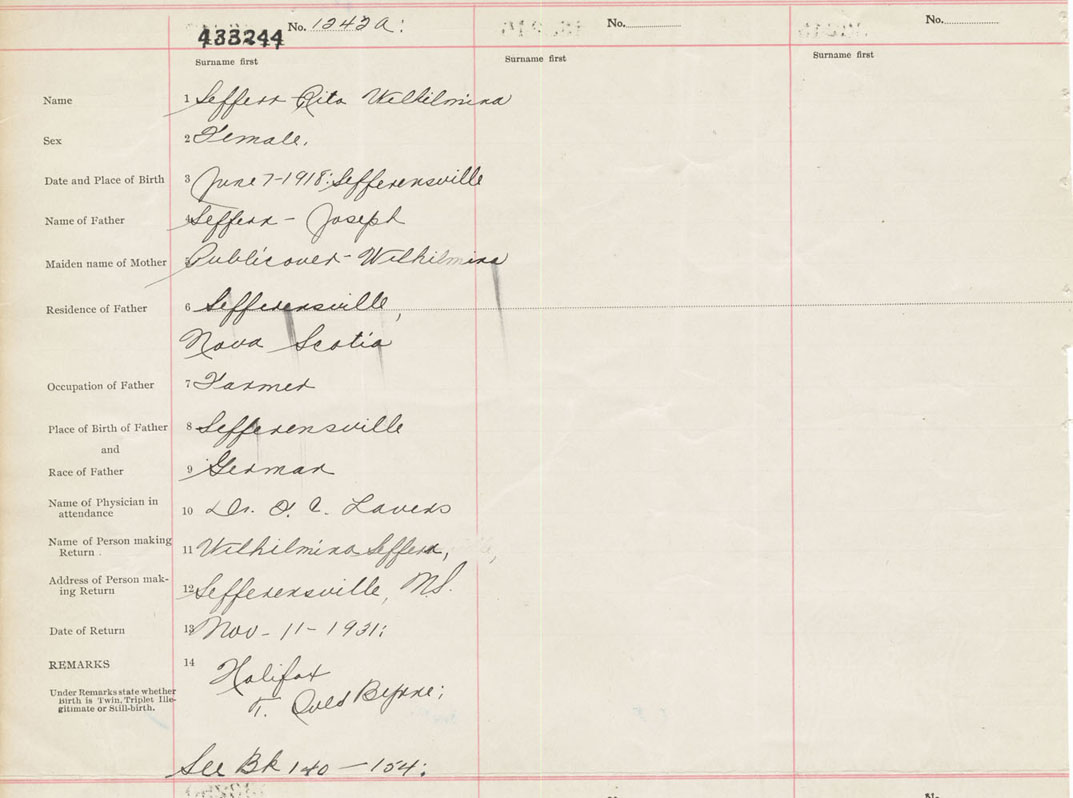 433244 No. 1242a: No. No.
Surname first Surname first Surname first
Name 1 Seffern Rita Wilhilmina
Sex 2 Female.
Date and Place of Birth 3 June 7-1918: Sefferensville
Name of Father 4 Seffern - Joseph
Maiden name of Mother 5 Publicover - Wilhilmina
Residence of Father 6 Sefferensville,
Nova Scotia
Occupation of Father 7 Farmer
Place of Birth of Father 8 Sefferensville
and
Race of Father 9 German
Name of Physician in
attendance 10 Dr. O. C. Lavers
Name of Person making
Return . 11 Wilhilmina Seffern,
Address of Person mak-
ing Return 12 Sefferensville, N.S.
Date of Return 13 Nov - 11 - 1931:
REMARKS 14 Halifax
Under Remarks state whether
Birth is Twin, Triplet Ille-
gitimate or Still-birth.
T. Byrne;
See Bk 140 - 154:
No. No.